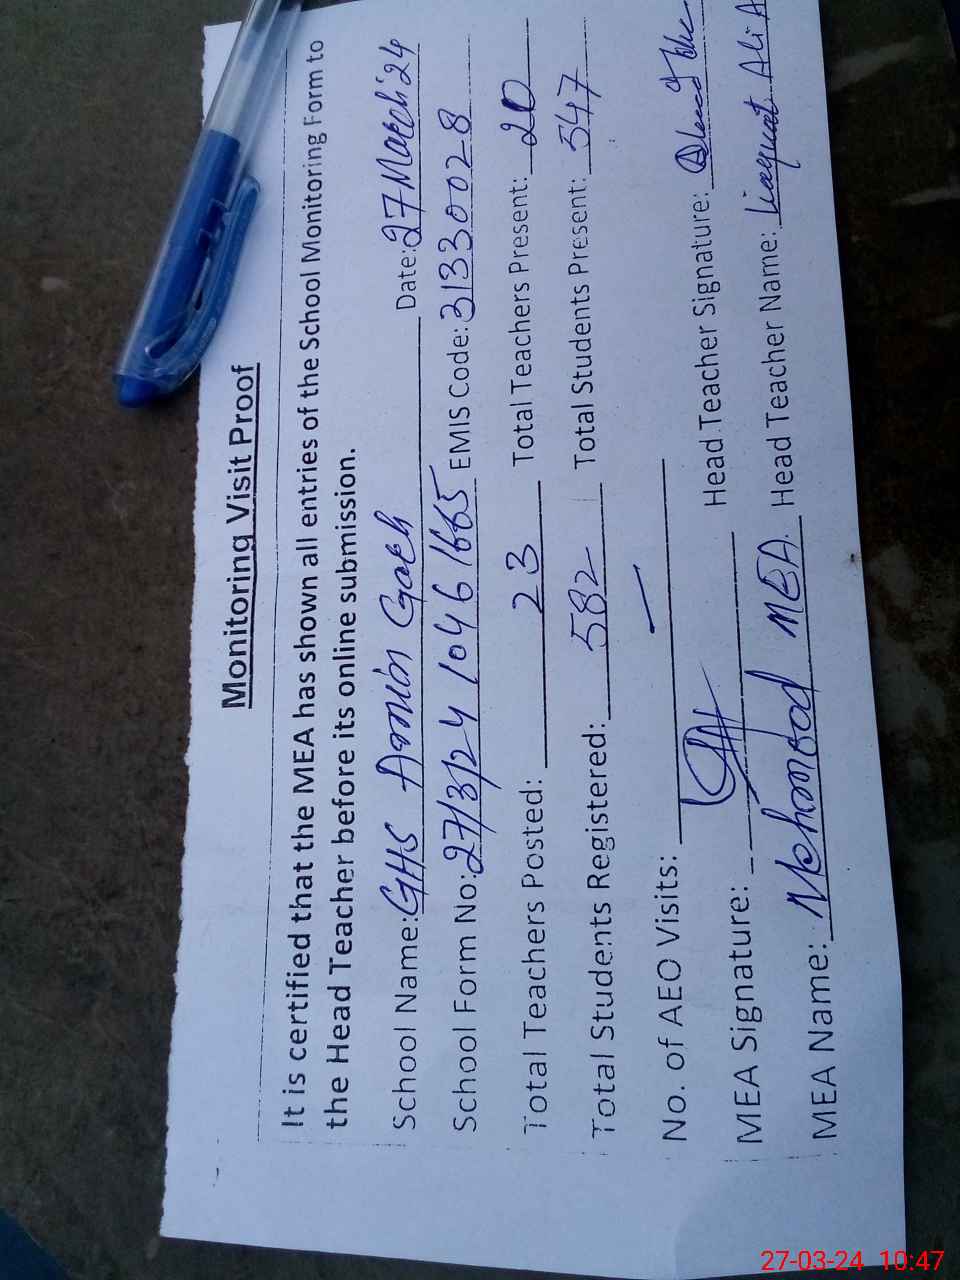 Monitoring Visit Proof
It is certified that the MEA has shown all entries of the School Monitoring Form to
the Head Teacher before its online submission.
School Name: GHS Amin Garh Date: 27 March'24
School Form No: 27/3/24 10461665 EMIS Code: 31330028
Total Teachers Posted: 23 Total Teachers Present: 20
Total Students Registered: 582 Total Students Present: 547
No. of AEO Visits: —
MEA Signature: Head Teacher Signature:
MEA Name: MEA. Head Teacher Name: Liaquat Ali A
27-03-24 10:47